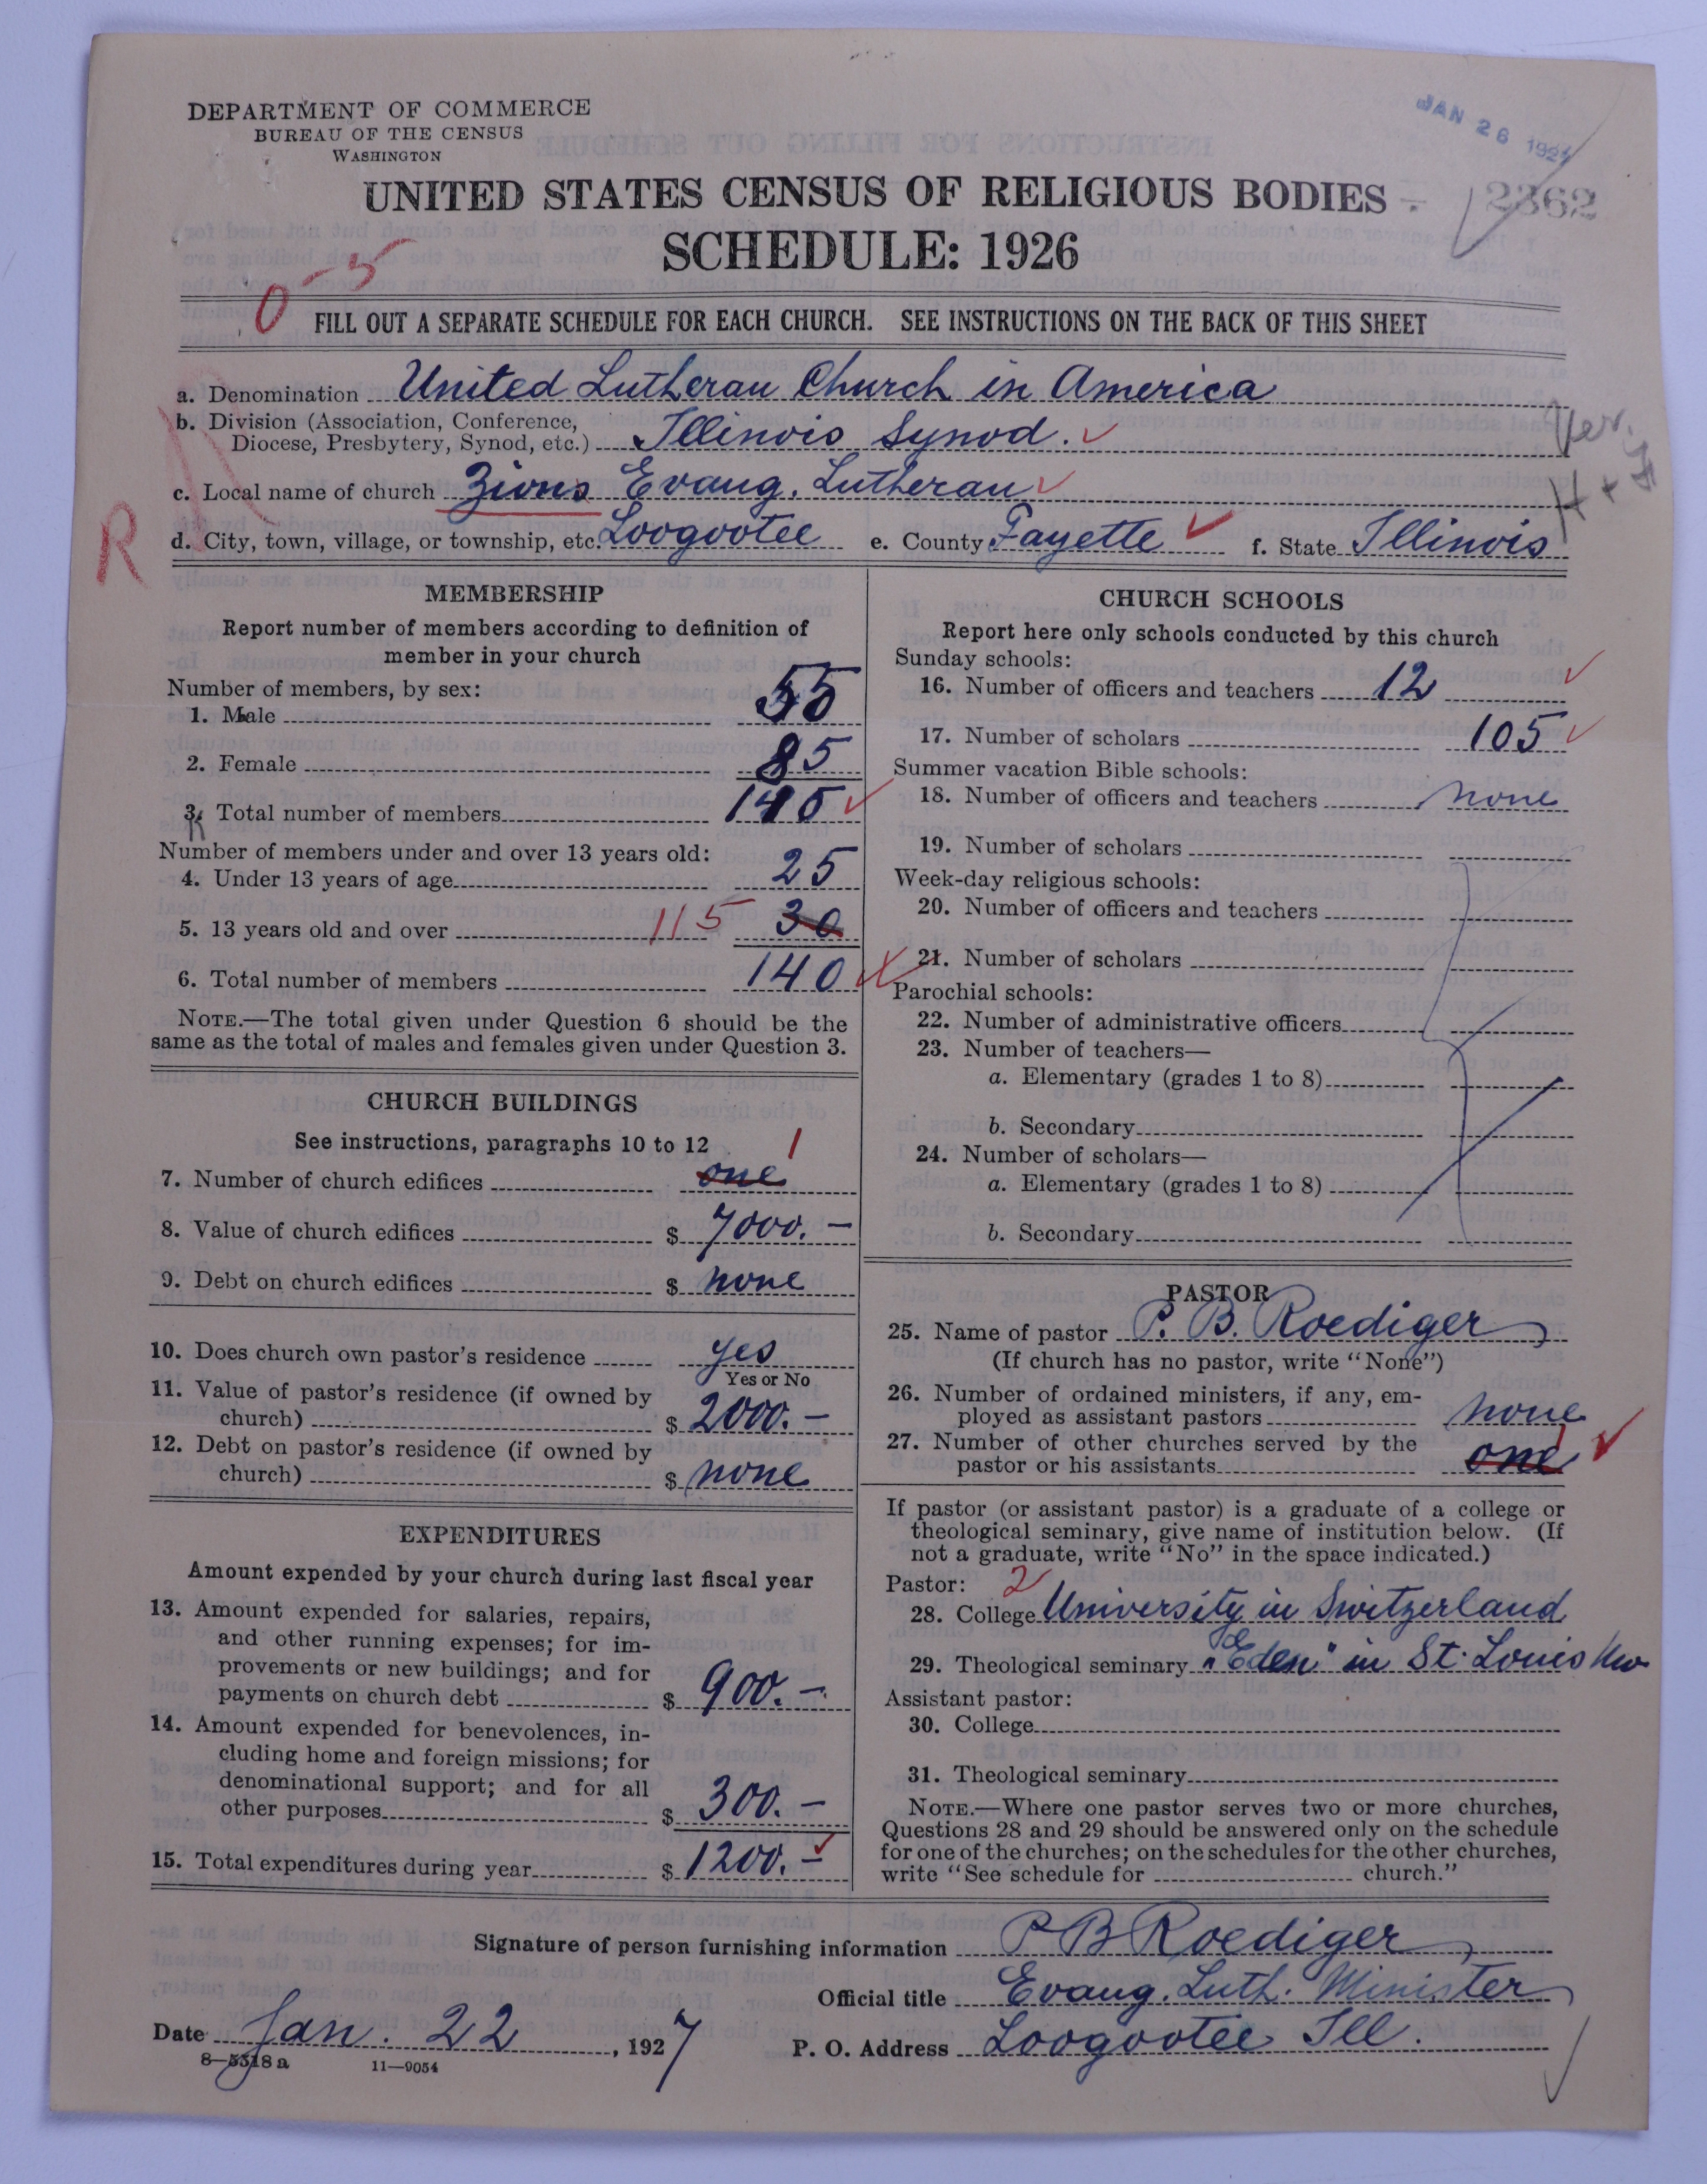 DEPARTMENT OF COMMERCE
BUREAU OF THE CENSUS
WASHINGTON
JAN 26 1927
UNITED STATES CENSUS OF RELIGIOUS BODIES
2362
SCHEDULE: 1926
0-5
FILL OUT A SEPARATE SCHEDULE FOR EACH CHURCH. SEE INSTRUCTIONS ON THE BACK OF THIS SHEET
a. Denomination United Lutheran Church in America
b. Division (Association, Conference,
Diocese, Presbytery, Synod, etc.) Illinois Synod.
Ver.
c. Local name of church Zions Evang. Lutheran
R
d. City, town, village, or township, etc. Loogootee e. County Fayette f. State Illinois
MEMBERSHIP
Report number of members according to definition of
member in your church
Number of members, by sex:
1. Male 55
2. Female 85
3. Total number of members 140
Number of members under and over 13 years old:
4. Under 13 years of age 25
5. 13 years old and over 115 30
6. Total number of members 140
NOTE.—The total given under Question 6 should be the
same as the total of males and females given under Question 3.
CHURCH BUILDINGS
See instructions, paragraphs 10 to 12
1
7. Number of church edifices one
8. Value of church edifices $ 7000.—
9. Debt on church edifices $ none
10. Does church own pastor's residence yes
Yes or No
11. Value of pastor's residence (if owned by
church) $ 2000.—
12. Debt on pastor's residence (if owned by
church) $ none
EXPENDITURES
Amount expended by your church during last fiscal year
13. Amount expended for salaries, repairs,
and other running expenses; for im-
provements or new buildings; and for
payments on church debt $ 900.—
14. Amount expended for benevolences, in-
cluding home and foreign missions; for
denominational support; and for all
other purposes $ 300.—
15. Total expenditures during year $ 1200.—
CHURCH SCHOOLS
Report here only schools conducted by this church
Sunday schools:
16. Number of officers and teachers 12
17. Number of scholars 105
Summer vacation Bible schools:
18. Number of officers and teachers none
19. Number of scholars
Week-day religious schools:
20. Number of officers and teachers
21. Number of scholars
Parochial schools:
22. Number of administrative officers
23. Number of teachers—
a. Elementary (grades 1 to 8)
b. Secondary
24. Number of scholars—
a. Elementary (grades 1 to 8)
b. Secondary
PASTOR
25. Name of pastor P. B. Roediger
(If church has no pastor, write "None")
26. Number of ordained ministers, if any, em-
ployed as assistant pastors none
27. Number of other churches served by the
pastor or his assistants one 1
If pastor (or assistant pastor) is a graduate of a college or
theological seminary, give name of institution below. (If
not a graduate, write "No" in the space indicated.)
Pastor: 2
28. College University in Switzerland
29. Theological seminary "Eden" in St. Louis Mo
Assistant pastor:
30. College
31. Theological seminary
NOTE.—Where one pastor serves two or more churches,
Questions 28 and 29 should be answered only on the schedule
for one of the churches; on the schedules for the other churches,
write "See schedule for church."
Signature of person furnishing information P B Roediger
Official title Evang. Luth. Minister
Date Jan. 22, 1927 P. O. Address Loogootee Ill.
8—5318a 11—9054